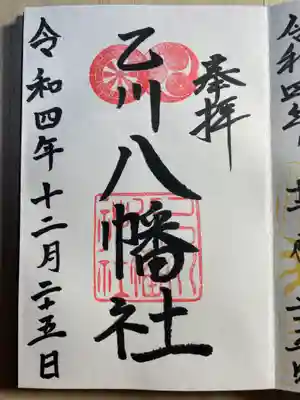 奉拝
乙川八幡社
令和四年十二月二十五日